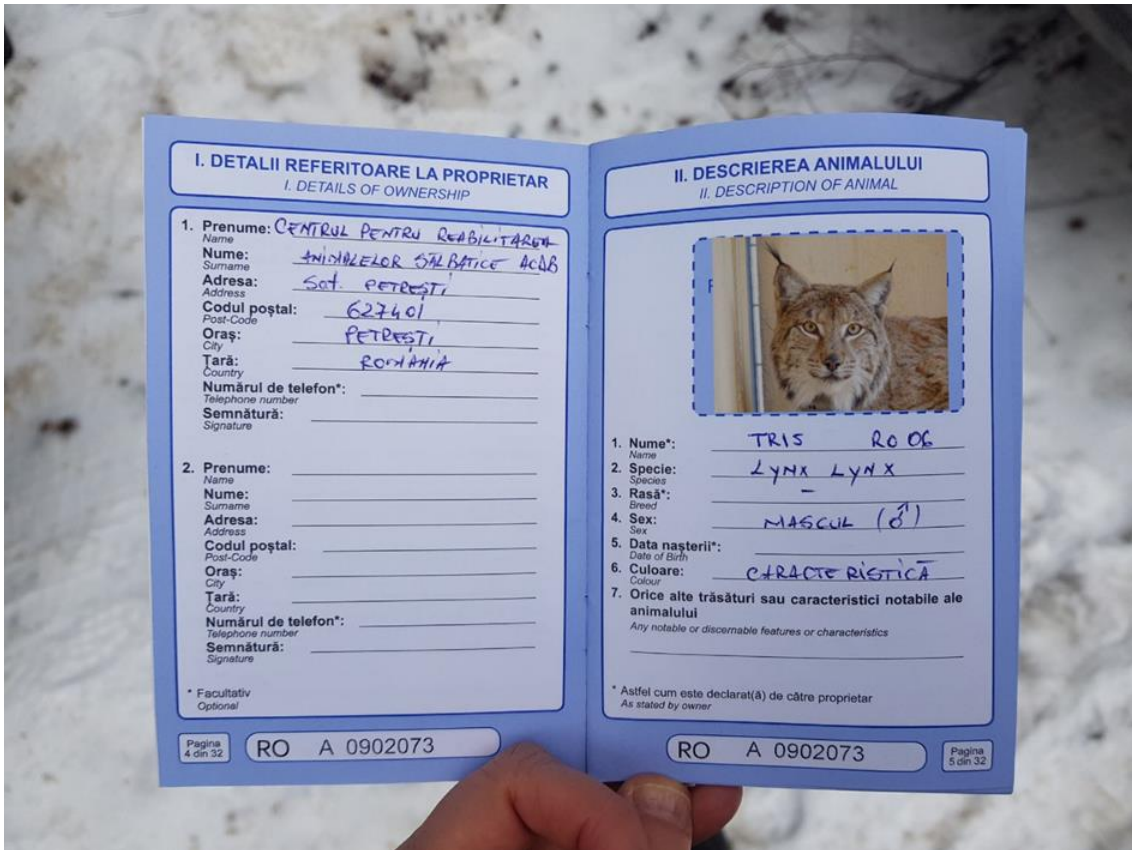 I. DETALII REFERITOARE LA PROPRIETAR
I. DETAILS OF OWNERSHIP
1. Prenume: CENTRUL PENTRU REABILITAREA
Name
Nume: ANIMALELOR SĂLBATICE ACDB
Surname
Adresa: Sat. PETREȘTI
Address
Codul poștal: 627401
Post-Code
Oraș: PETREȘTI
City
Țară: ROMÂNIA
Country
Numărul de telefon*:
Telephone number
Semnătură:
Signature
2. Prenume:
Name
Nume:
Surname
Adresa:
Address
Codul poștal:
Post-Code
Oraș:
City
Țară:
Country
Numărul de telefon*:
Telephone number
Semnătură:
Signature
* Facultativ
Optional
Pagina
4 din 32
RO A 0902073
II. DESCRIEREA ANIMALULUI
II. DESCRIPTION OF ANIMAL
1. Nume*: TRIS RO 06
Name
2. Specie: LYNX LYNX
Species
3. Rasă*: –
Breed
4. Sex: MASCUL (♂)
Sex
5. Data nașterii*:
Date of Birth
6. Culoare: CARACTERISTICĂ
Colour
7. Orice alte trăsături sau caracteristici notabile ale
animalului
Any notable or discernable features or characteristics
* Astfel cum este declarat(ă) de către proprietar
As stated by owner
RO A 0902073
Pagina
5 din 32